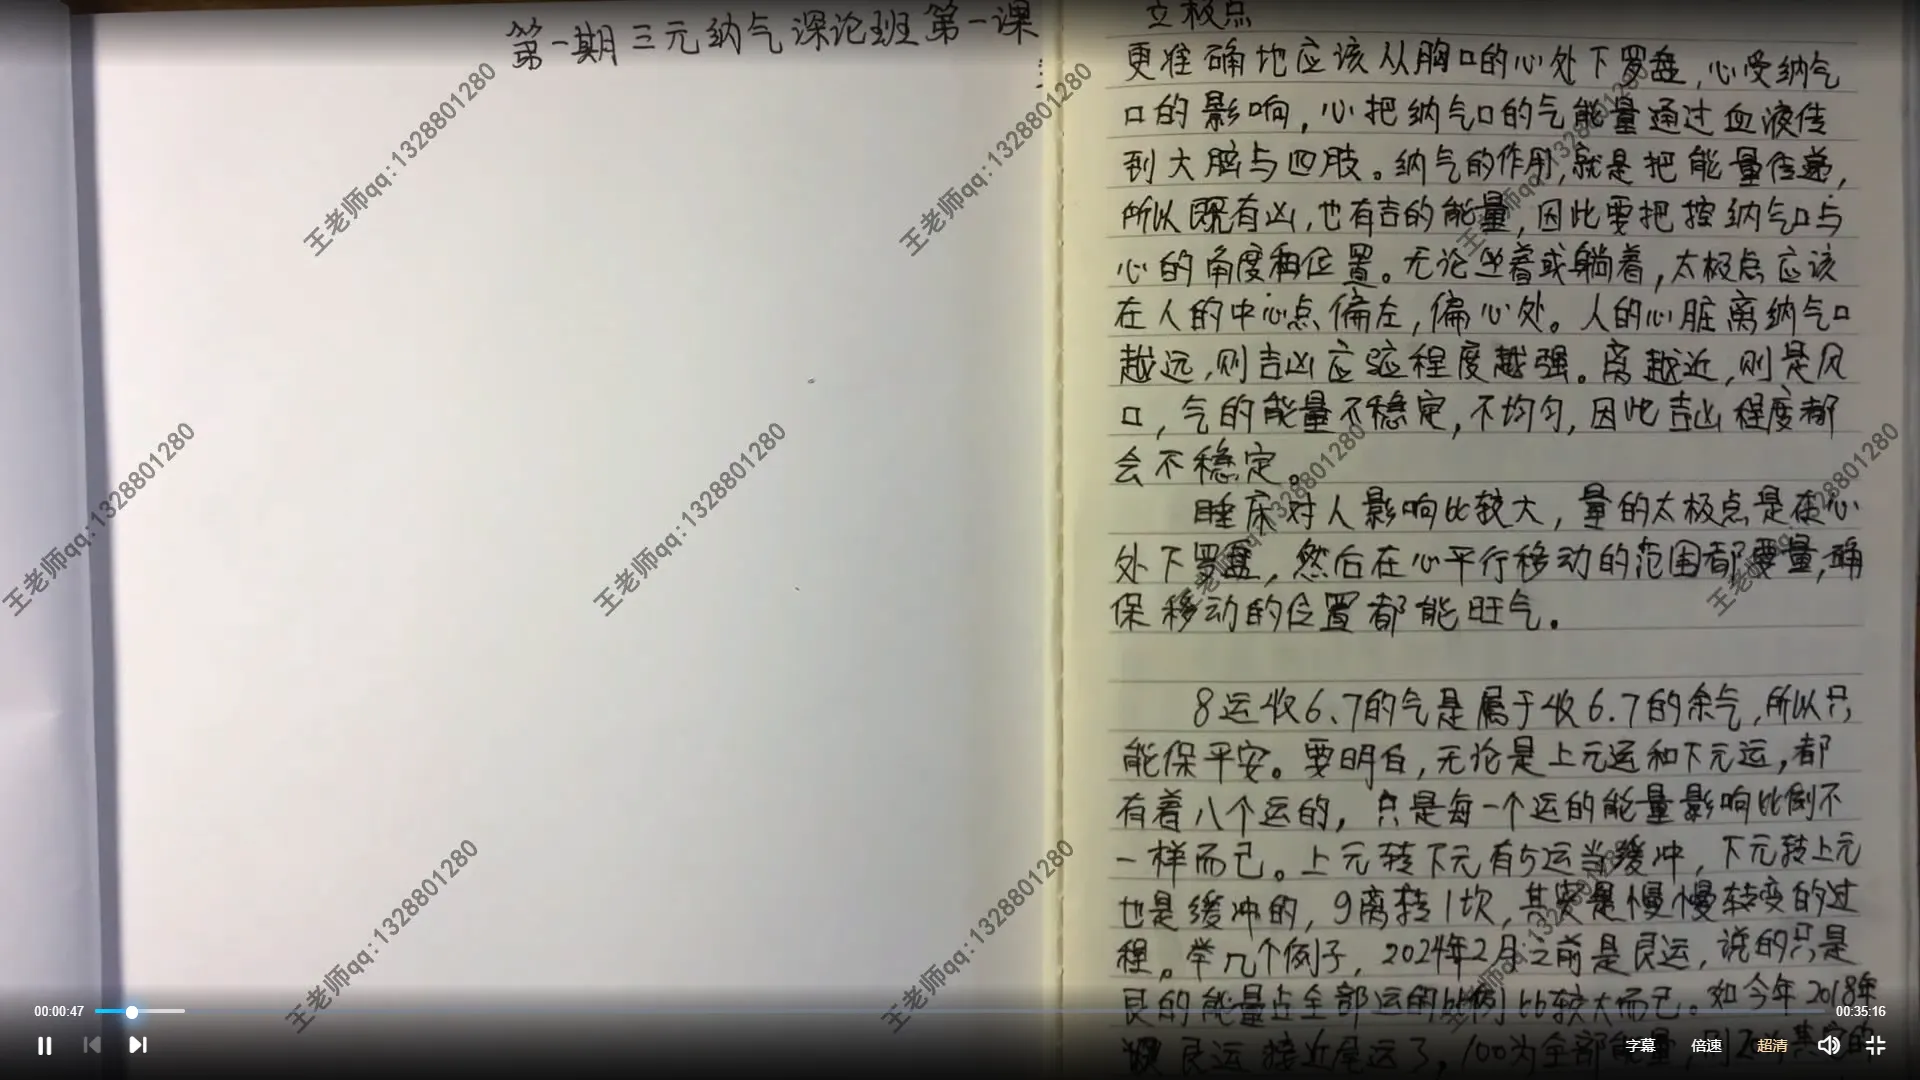 第一期三元纳气深论班第一课
立极点
更准确地应该从胸口的心处下罗盘，心受纳气
口的影响，心把纳气口的气能量通过血液传
到大脑与四肢。纳气的作用，就是把能量传递，
所以既有凶，也有吉的能量，因此要把控纳气口与
心的角度和位置。无论坐着或躺着，太极点应该
在人的中心点偏左，偏心处。人的心脏离纳气口
越远，则吉凶应验程度越强。离越近，则是风
口，气的能量不稳定，不均匀，因此吉凶程度都
会不稳定。
睡床对人影响比较大，量的太极点是在心
处下罗盘，然后在心平行移动的范围都要量，确
保移动的位置都能旺气。
8运收6.7的气是属于收6.7的余气，所以只
能保平安。要明白，无论是上元运和下元运，都
有着八个运的，只是每一个运的能量影响比例不
一样而已。上元转下元有5运当缓冲，下元转上元
也是缓冲的，9离转1坎，其实是慢慢转变的过
程。举几个例子，2024年2月之前是艮运，说的只是
艮的能量占全部运的比例比较大而已。如今年2018年
艮运接近尾运了，100为全部能量，则
王老师qq:1328801280
王老师qq:1328801280
王老师qq:1328801280
王老师qq:1328801280
王老师qq:1328801280
王老师qq:1328801280
00:00:47
00:35:16
字幕
倍速
超清